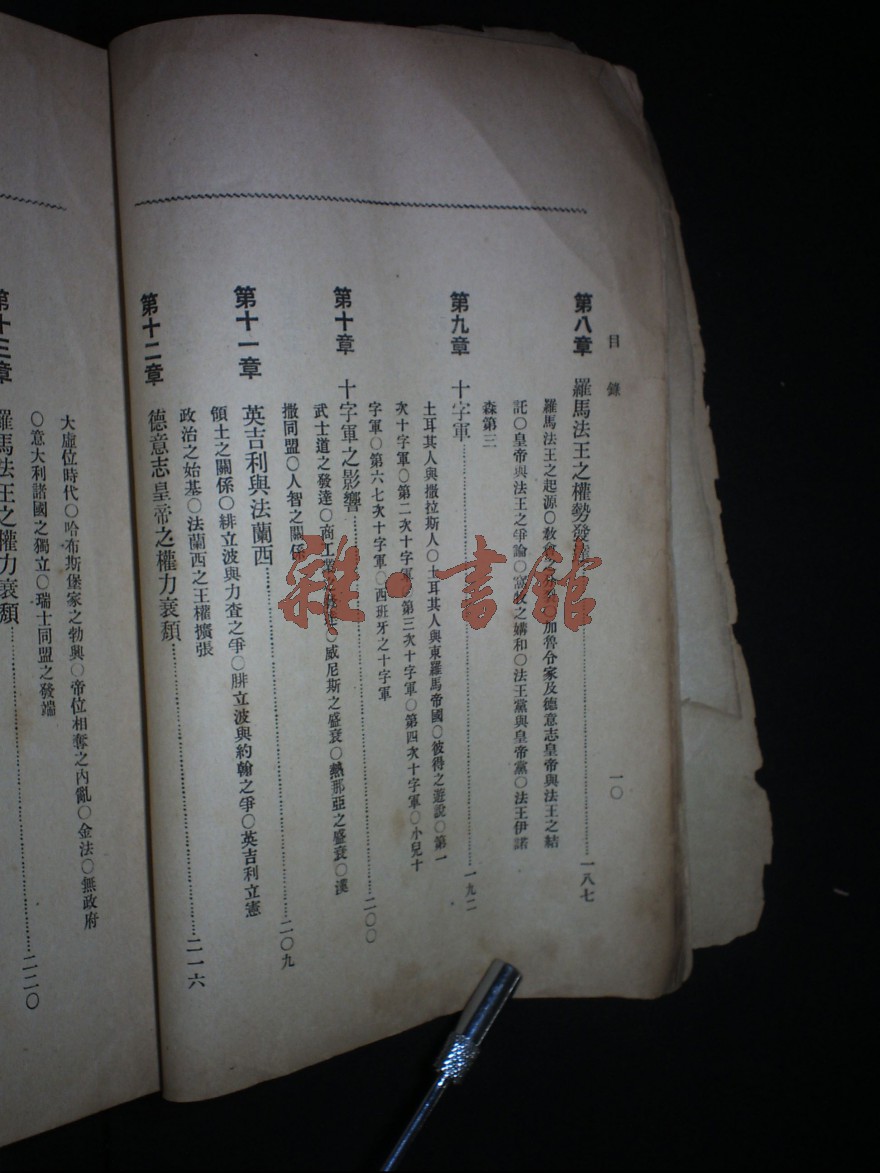 目錄
一〇
第八章 羅馬法王之權勢發⋯⋯一八七
羅馬法王之起源〇教會之分⋯加魯令家及德意志皇帝與法王之結
託〇皇帝與法王之爭論〇高牧之媾和〇法王黨與皇帝黨〇法王伊諾
森第三
第九章 十字軍⋯⋯一九二
土耳其人與撒拉斯人〇土耳其人與東羅馬帝國〇彼得之遊說〇第一
次十字軍〇第二次十字軍〇第三次十字軍〇第四次十字軍〇小兒十
字軍〇第六七次十字軍〇西班牙之十字軍
第十章 十字軍之影響⋯⋯二〇〇
武士道之發達〇商工業之發達〇威尼斯之盛衰〇熱那亞之盛衰〇漢
撒同盟〇人智之關係
第十一章 英吉利與法蘭西⋯⋯二〇九
領土之關係〇緋立波與力查之爭〇腓立波與約翰之爭〇英吉利立憲
政治之始基〇法蘭西之王權擴張
第十二章 德意志皇帝之權力衰頹⋯⋯二一六
大虛位時代〇哈布斯堡家之勃興〇帝位相奪之內亂〇金法〇無政府
〇意大利諸國之獨立〇瑞士同盟之發端
第十三章 羅馬法王之權力衰頹⋯⋯二二〇
雜·書館